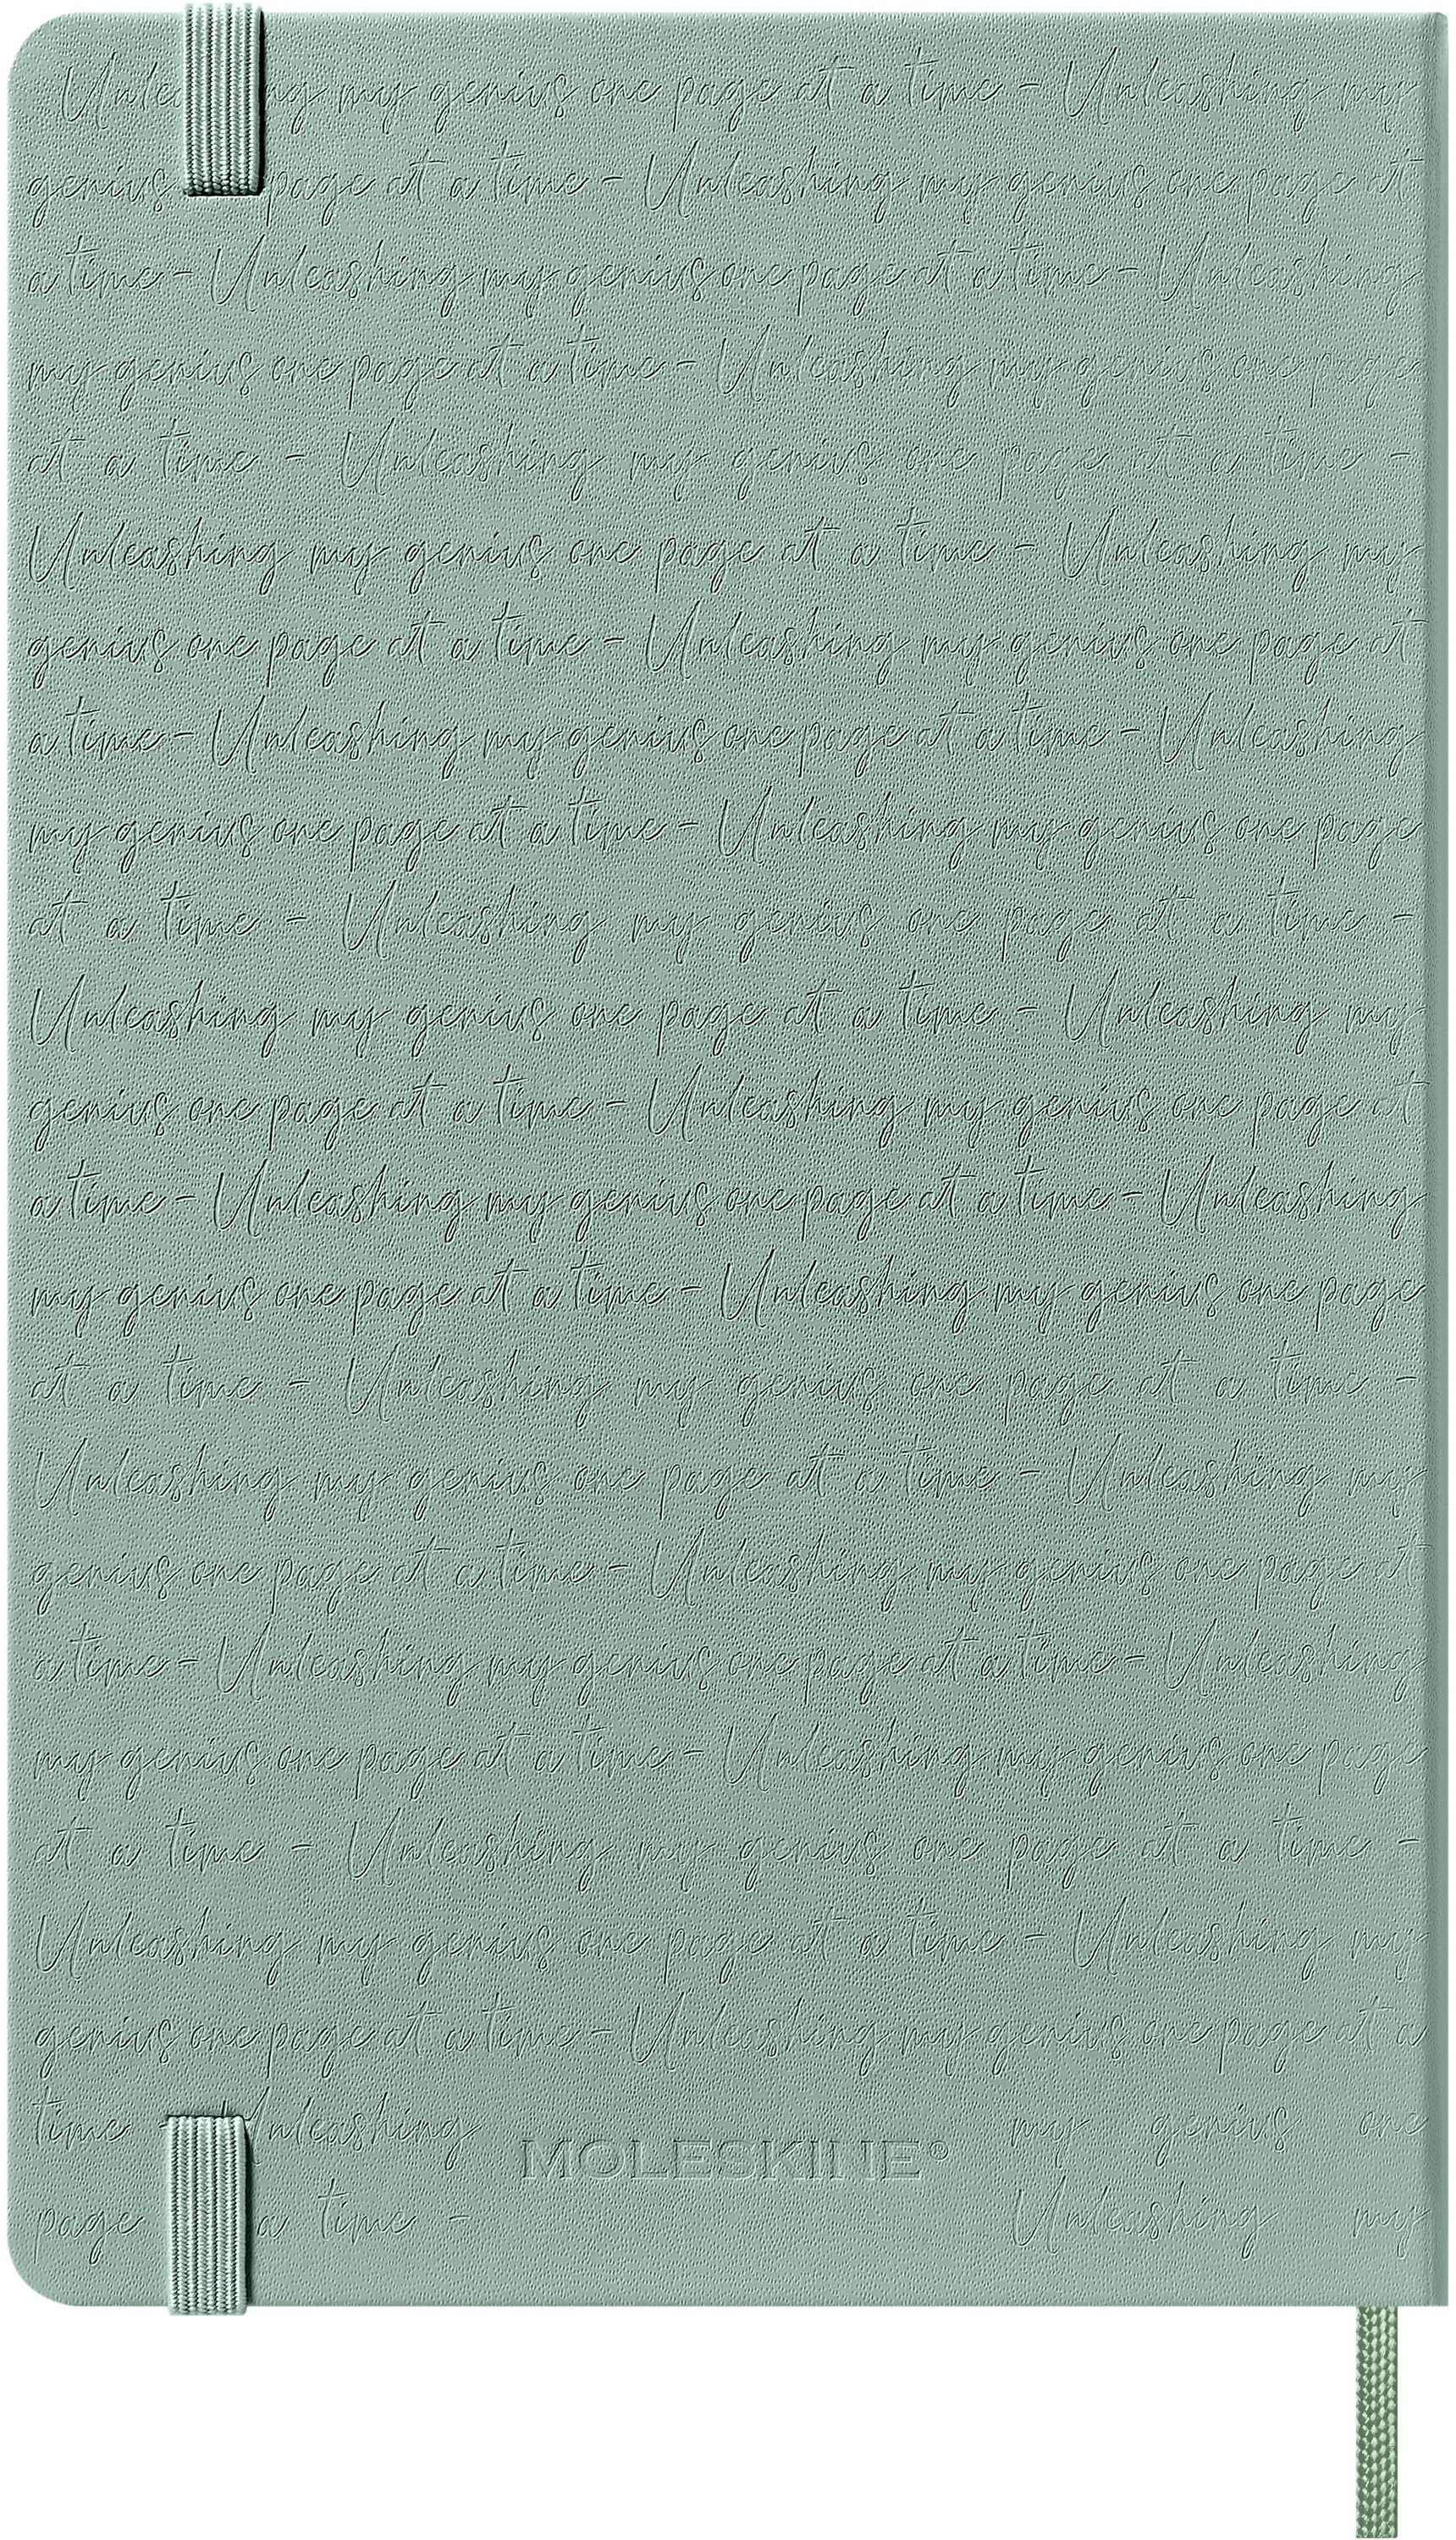 Unle ng my genius one page at a time - Unleashing my
genius page at a time - Unleashing my genius one page at
a time - Unleashing my genius one page at a time - Unleashing
my genius one page at a time - Unleashing my genius one page
at a time - Unleashing my genius one page at a time -
Unleashing my genius one page at a time - Unleashing my
genius one page at a time - Unleashing my genius one page at
a time - Unleashing my genius one page at a time - Unleashing
my genius one page at a time - Unleashing my genius one page
at a time - Unleashing my genius one page at a time -
Unleashing my genius one page at a time - Unleashing my
genius one page at a time - Unleashing my genius one page at
a time - Unleashing my genius one page at a time - Unleashing
my genius one page at a time - Unleashing my genius one page
at a time - Unleashing my genius one page at a time -
Unleashing my genius one page at a time - Unleashing my
genius one page at a time - Unleashing my genius one page at
a time - Unleashing my genius one page at a time - Unleashing
my genius one page at a time - Unleashing my genius one page
at a time - Unleashing my genius one page at a time -
Unleashing my genius one page at a time - Unleashing my
genius one page at a time - Unleashing my genius one page at a
time - Unleashing my genius one
MOLESKINE®
page a time - Unleashing my